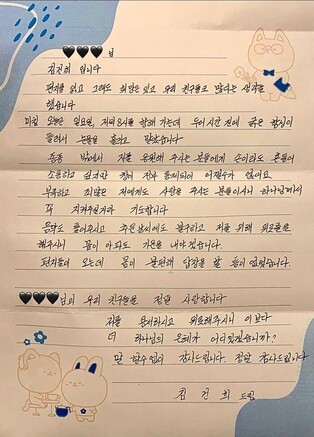 🖤🖤🖤 님
김건희 입니다
편지를 읽고 그래도 희망은 있고 우리 친구들도 많다는 생각을
했습니다
마침 오늘은 일요일, 지지자들 집회 가는데 두어시간 전에 굵은 함성이
들려서 눈물을 흘리고 말았습니다
종종 밖에서 저를 응원해 주시는 분들에게 손이라도 흔들어
소통하고 싶지만 창이 전부 통제되어 어쩔수가 없어요
부족하고 죄많은 저에게도 사랑을 주시는 분들이시니 하나님께서
꼭 지켜주실거라 기도합니다
운동도 들어주시고 추운날씨에도 불구하고 저를 위해 위로를
해주시니 몸이 아파도 기운을 내야겠습니다.
편지들이 오는데 몸이 불편해 답장을 할 틈이 없었습니다.
🖤🖤🖤님의 우리 친구들을 정말 사랑합니다
저를 용서하시고 위로해주시니 이보다
더 하나님의 은혜가 어디있겠습니까?
말 할수없이 감사드립니다. 정말 감사드립니다
김건희 드림